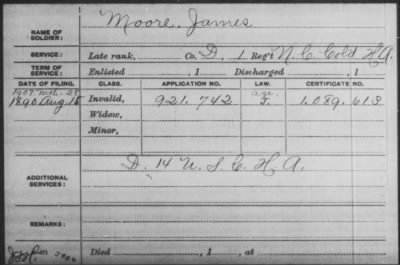 Moore, James
NAME OF SOLDIER:
SERVICE: Late rank, Co. D, 1 Reg't N. C. Cold H. A.
TERM OF SERVICE: Enlisted , 1 Discharged , 1
DATE OF FILING. CLASS. APPLICATION NO. LAW. CERTIFICATE NO.
1907 Mch. 28 age
1890 Aug 15 Invalid, 921.742 J. 1.089.613
Widow,
Minor,
D. 14 U. S. C. H. A.
ADDITIONAL SERVICES:
REMARKS:
Died , 1 , at